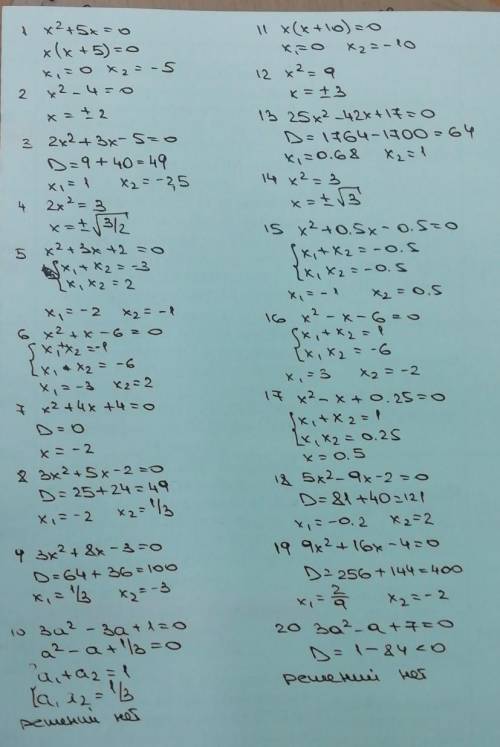 1 x²+5x=0
x(x+5)=0
x₁=0 x₂=-5
2 x²-4=0
x=±2
3 2x²+3x-5=0
D=9+40=49
x₁=1 x₂=-2,5
4 2x²=3
x=±√3/2
5 x²+3x+2=0
{x₁+x₂=-3
{x₁x₂=2
x₁=-2 x₂=-1
6 x²+x-6=0
{x₁+x₂=-1
{x₁*x₂=-6
x₁=-3 x₂=2
7 x²+4x+4=0
D=0
x=-2
8 3x²+5x-2=0
D=25+24=49
x₁=-2 x₂=1/3
9 3x²+8x-3=0
D=64+36=100
x₁=1/3 x₂=-3
10 3a²-3a+1=0
a²-a+1/3=0
{a₁+a₂=1
{a₁ a₂=1/3
решений нет
11 x(x+10)=0
x₁=0 x₂=-10
12 x²=9
x=±3
13 25x²-42x+17=0
D=1764-1700=64
x₁=0.68 x₂=1
14 x²=3
x=±√3
15 x²+0.5x-0.5=0
{x₁+x₂=-0.5
{x₁x₂=-0.5
x₁=-1 x₂=0.5
16 x²-x-6=0
{x₁+x₂=1
{x₁x₂=-6
x₁=3 x₂=-2
17 x²-x+0.25=0
{x₁+x₂=1
{x₁x₂=0.25
x=0.5
18 5x²-9x-2=0
D=81+40=121
x₁=-0.2 x₂=2
19 9x²+16x-4=0
D=256+144=400
x₁=2/9 x₂=-2
20 3a²-a+7=0
D=1-84<0
решений нет